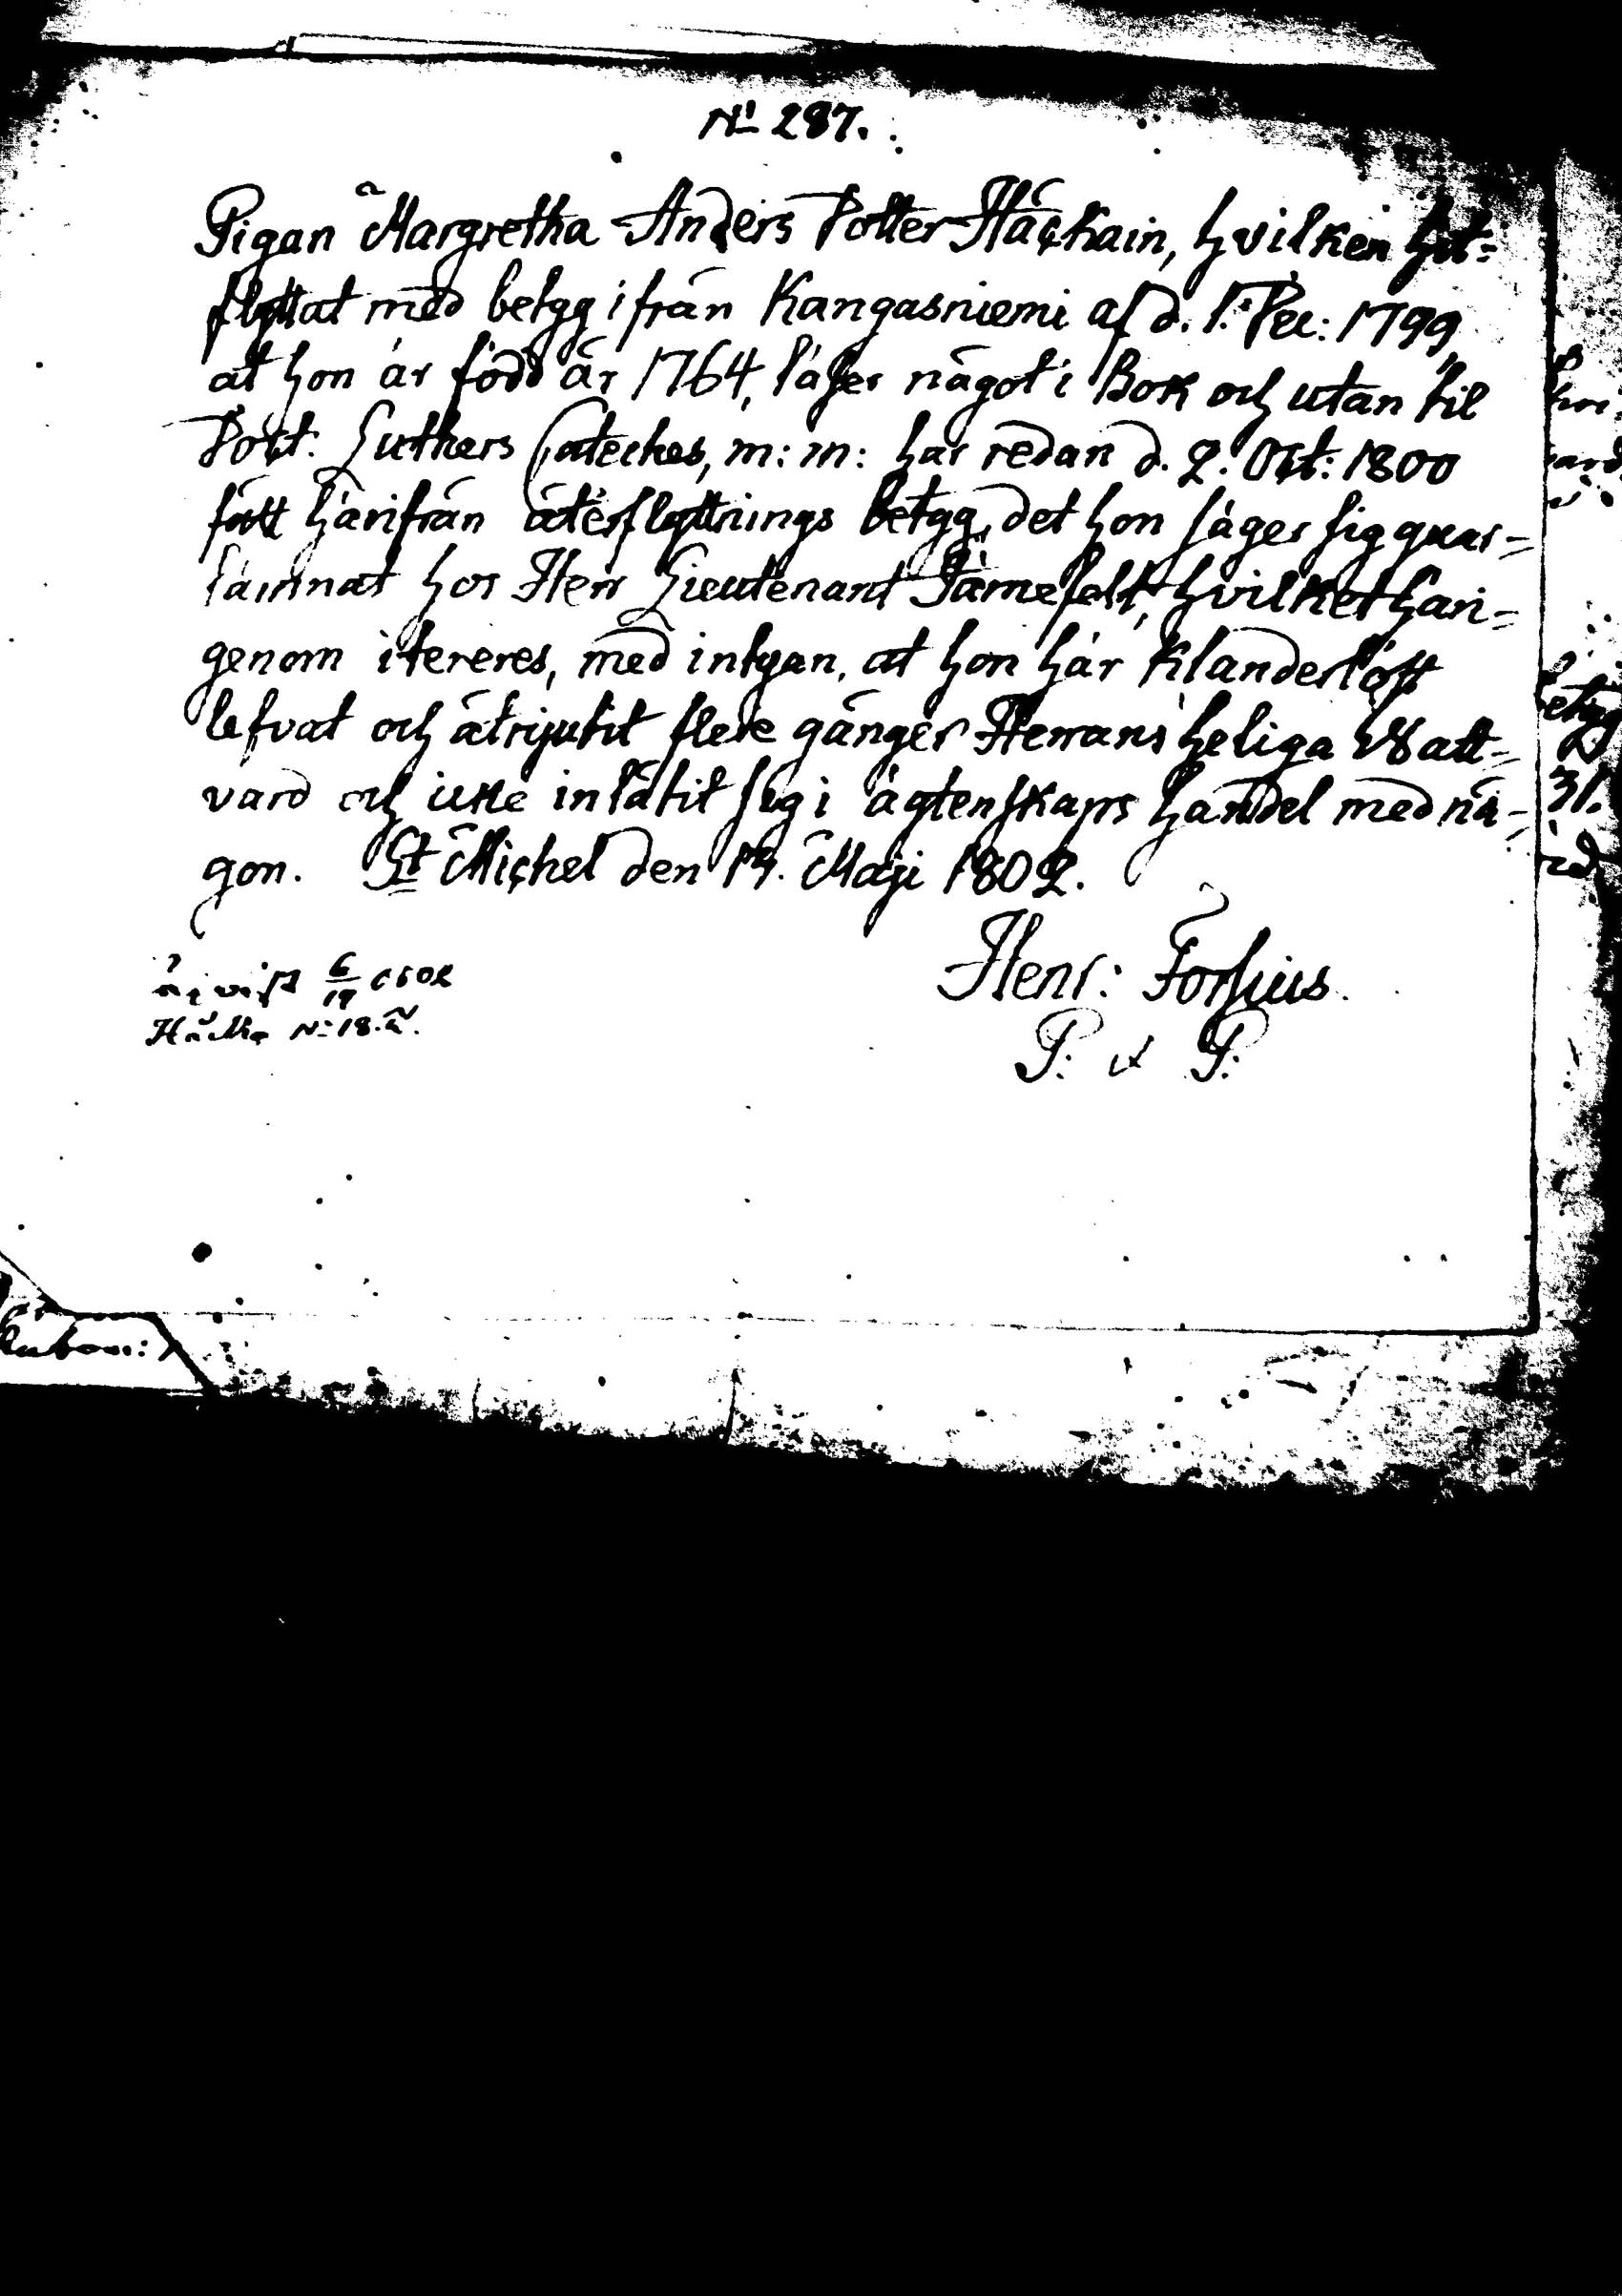 No 287.
Pigan Margretha Anders Dotter Häckain, hvilken hit-
flyttat med betyg ifrån Kangasniemi af d. 1. Dec: 1799
at hon är född år 1764, läser något i Bok och utan til
Doct: Luthers Cateches, m: m: har redan d. 2. Oct: 1800
fått härifrån återflyttnings betyg, det hon säger sig quar-
lämnat hos Herr Lieutenant Järnefelt, hvilket häri-
genom itereres, med intygan, at hon här klanderlöst
lefvat och åtnjutit flere gånger Herrans heliga Natt-
vard och icke inlåtit sig i ägtenskaps handel med nå-
gon. St Michel den 14. Maji 1802.
Henr: Forsius.
P: & P:
upvist 6/19 1802
No 18.
betyg
31.